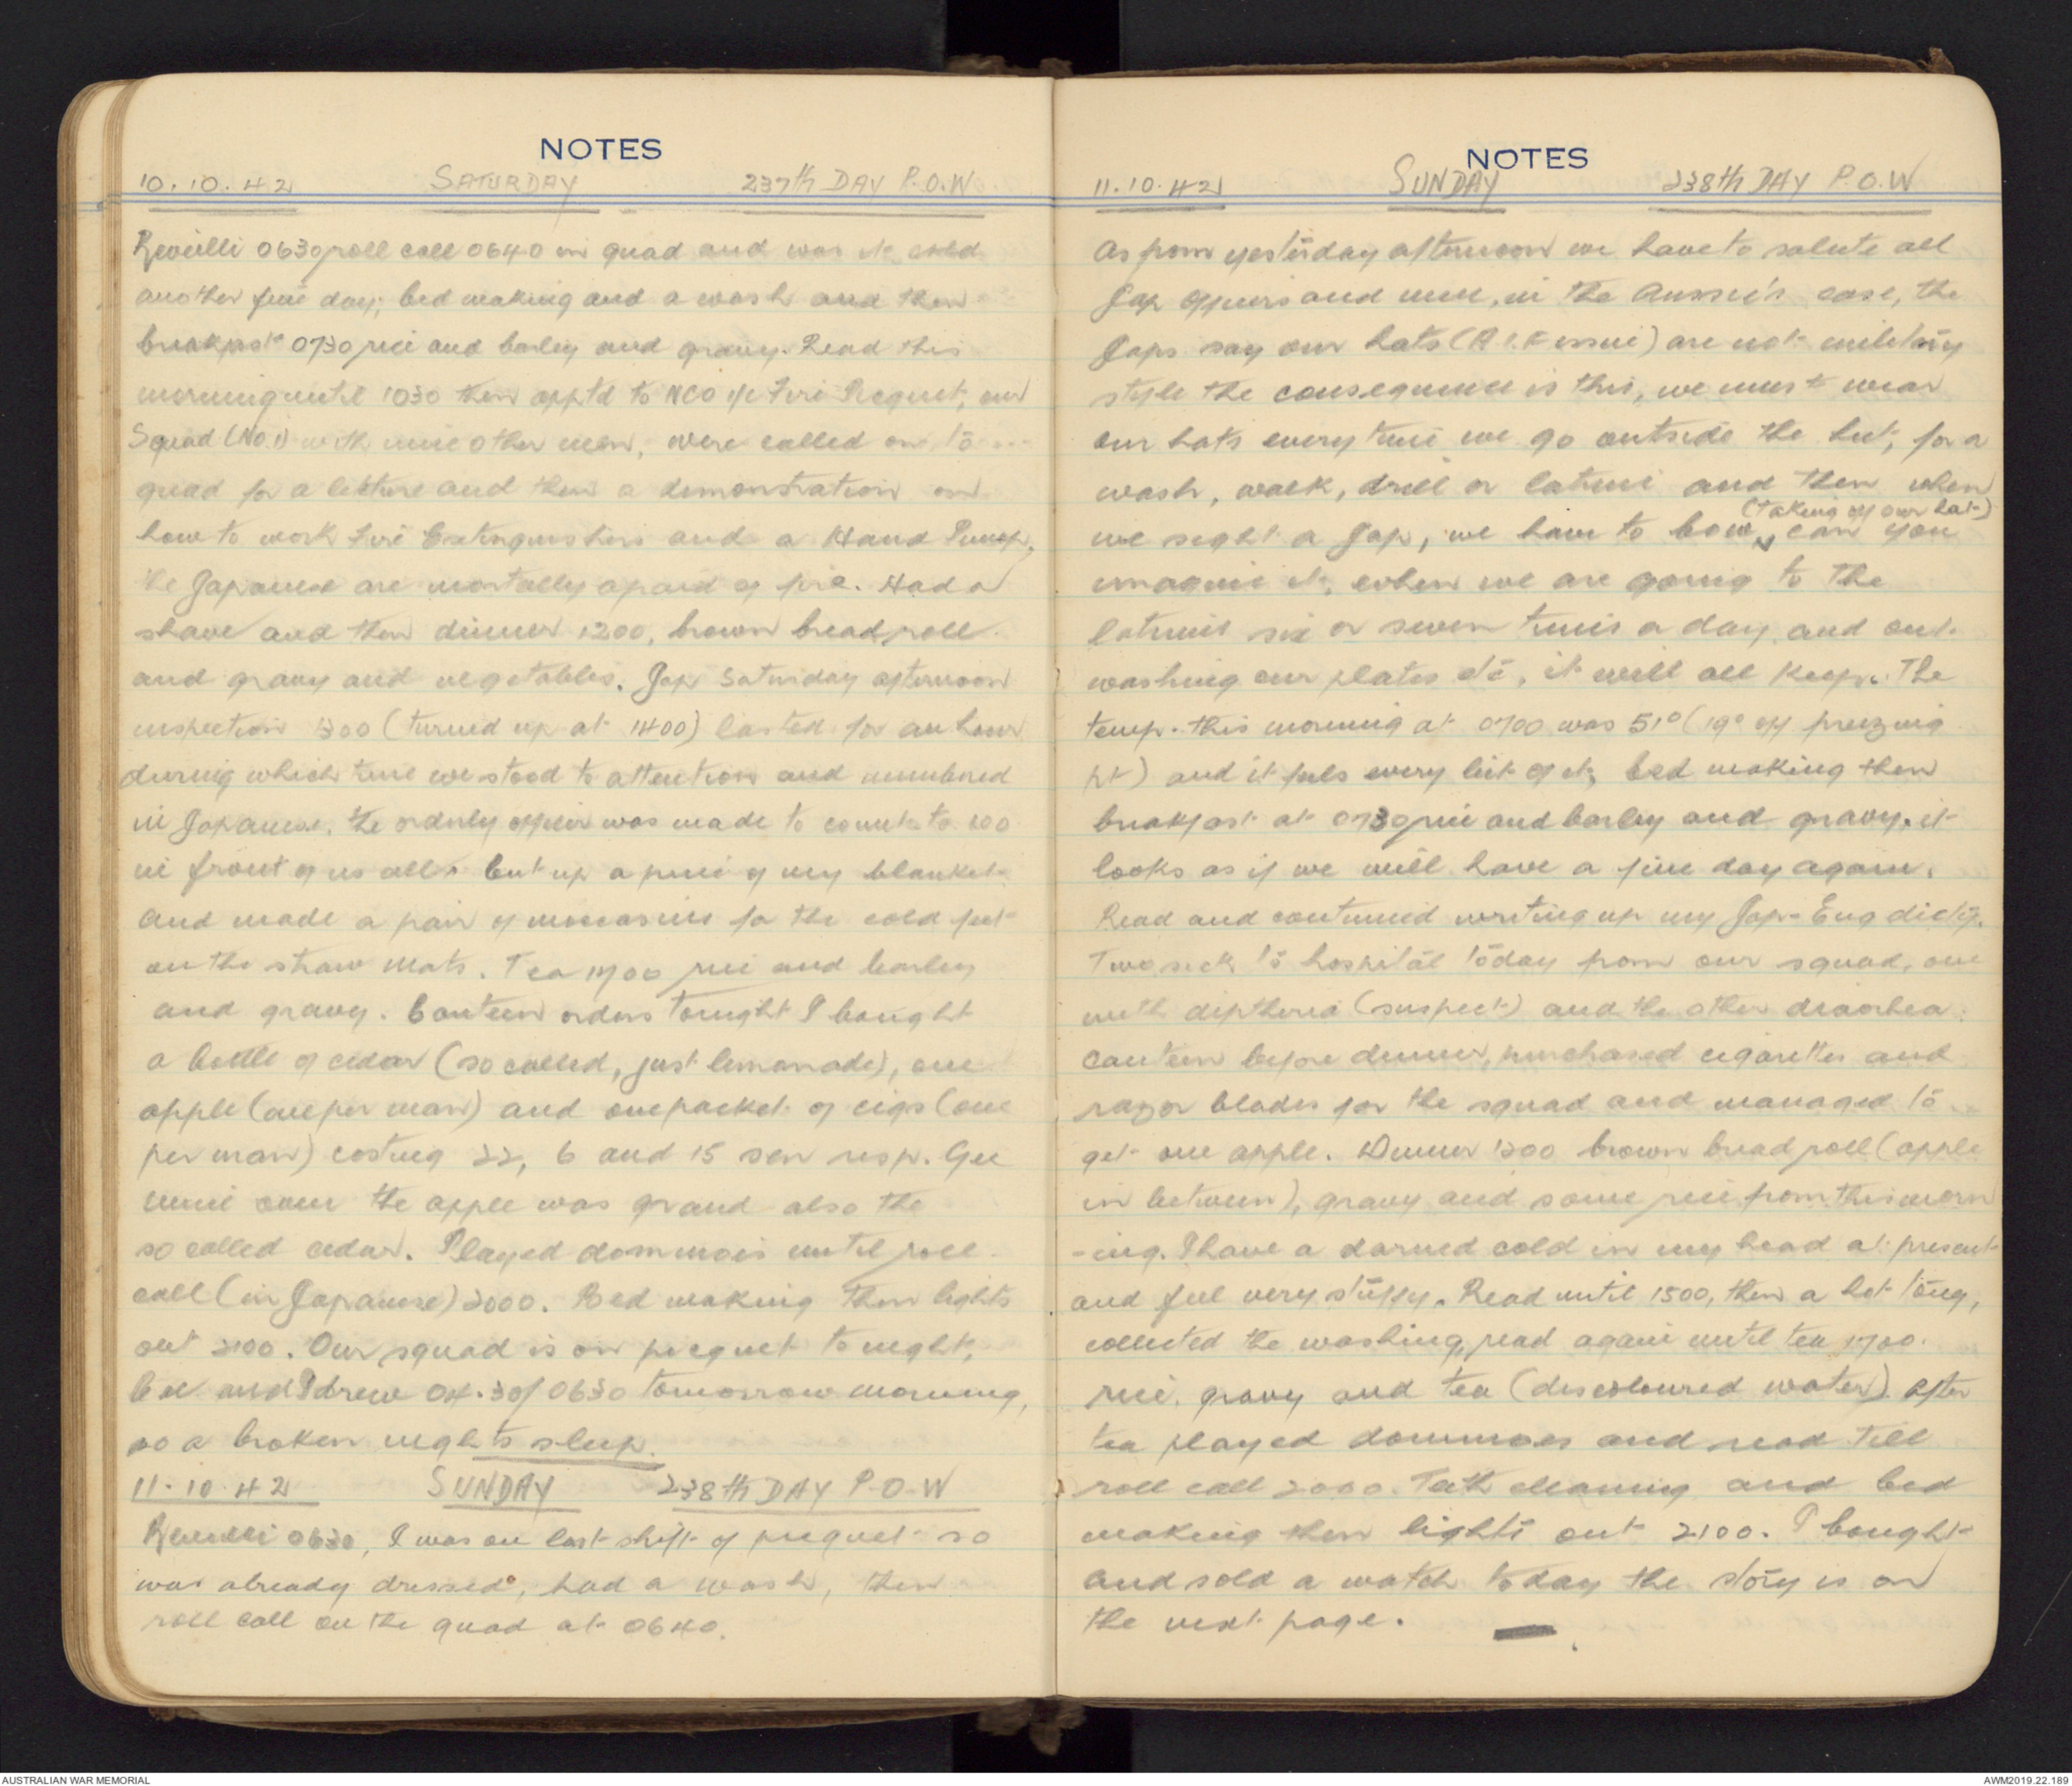 NOTES
10.10.42 SATURDAY 237th DAY P.O.W.
Reveilli 0630, roll call 0640 in quad and was it cold
another fine day; bed making and a wash and then
breakfast 0730 rice and barley and gravy. Read this
morning until 1030 then apptd to NCO i/c Fire Picquet, our
Squad (No.1) with nine other men, were called on to
quad for a lecture and then a demonstration on
how to work Fire Extinguishers and a Hand Pump,
the Japanese are mortally afraid of fire. Had a
shave and then dinner 1200, brown bread roll
and gravy and vegetables. Jap Saturday afternoon
inspection 1300 (turned up at 1400) lasted for an hour
during which time we stood to attention and numbered
in Japanese, the orderly officer was made to count to 100
in front of us all. Cut up a piece of my blanket
and made a pair of moccasins for the cold feet
on the straw mats. Tea 1700 rice and barley
and gravy. Canteen orders tonight I bought
a bottle of cedar (so called, just lemonade), one
apple (one per man) and one packet of cigs (one
per man) costing 22, 6 and 15 sen resp. Gee
the apple was grand also the
so called cedar. Played dominoes until roll
call (in Japanese) 2000. Bed making then lights
out 2100. Our squad is on picquet tonight,
and I drew 04.30/0630 tomorrow morning,
so a broken nights sleep.
11.10.42 SUNDAY 238th DAY P.O.W
Reveilli 0630, I was on last shift of picquet so
was already dressed, had a wash, then
roll call on the quad at 0640.
NOTES
11.10.42 SUNDAY 238th DAY P.O.W
As from yesterday afternoon we have to salute all
Jap officers and men, in the Aussie's case, the
Japs say our hats (A.I.F issue) are not military
style the consequence is this, we must wear
our hats every time we go outside the hut, for a
wash, walk, drill or latrine and then when
(taking off our hat)
we sight a Jap, we have to bow, can you
imagine it, when we are going to the
latrines six or seven times a day and out
washing our plates etc, it will all keep. The
temp. this morning at 0700 was 51° (19° off freezing
pt) and it feels every bit of it, bed making then
breakfast at 0730 rice and barley and gravy, it
looks as if we will have a fine day again.
Read and continued writing up my Jap-Eng dicty.
Two sick to hospital today from our squad, one
with diptheria (suspect) and the other diaorhea.
Canteen before dinner, purchased cigarettes and
razor blades for the squad and managed to
get one apple. Dinner 1200 brown bread roll (apple
in between), gravy and some rice from this morn
-ing. I have a darned cold in my head at present
and feel very stuffy. Read until 1500, then a hot
collected the washing, read again until tea 1700.
rice, gravy and tea (discoloured water). After
tea played dominoes and read till
roll call 2000. Teeth cleaning and bed
making then lights out 2100. I bought
and sold a watch today the story is on
the next page.
AUSTRALIAN WAR MEMORIAL
AWM2019.22.189